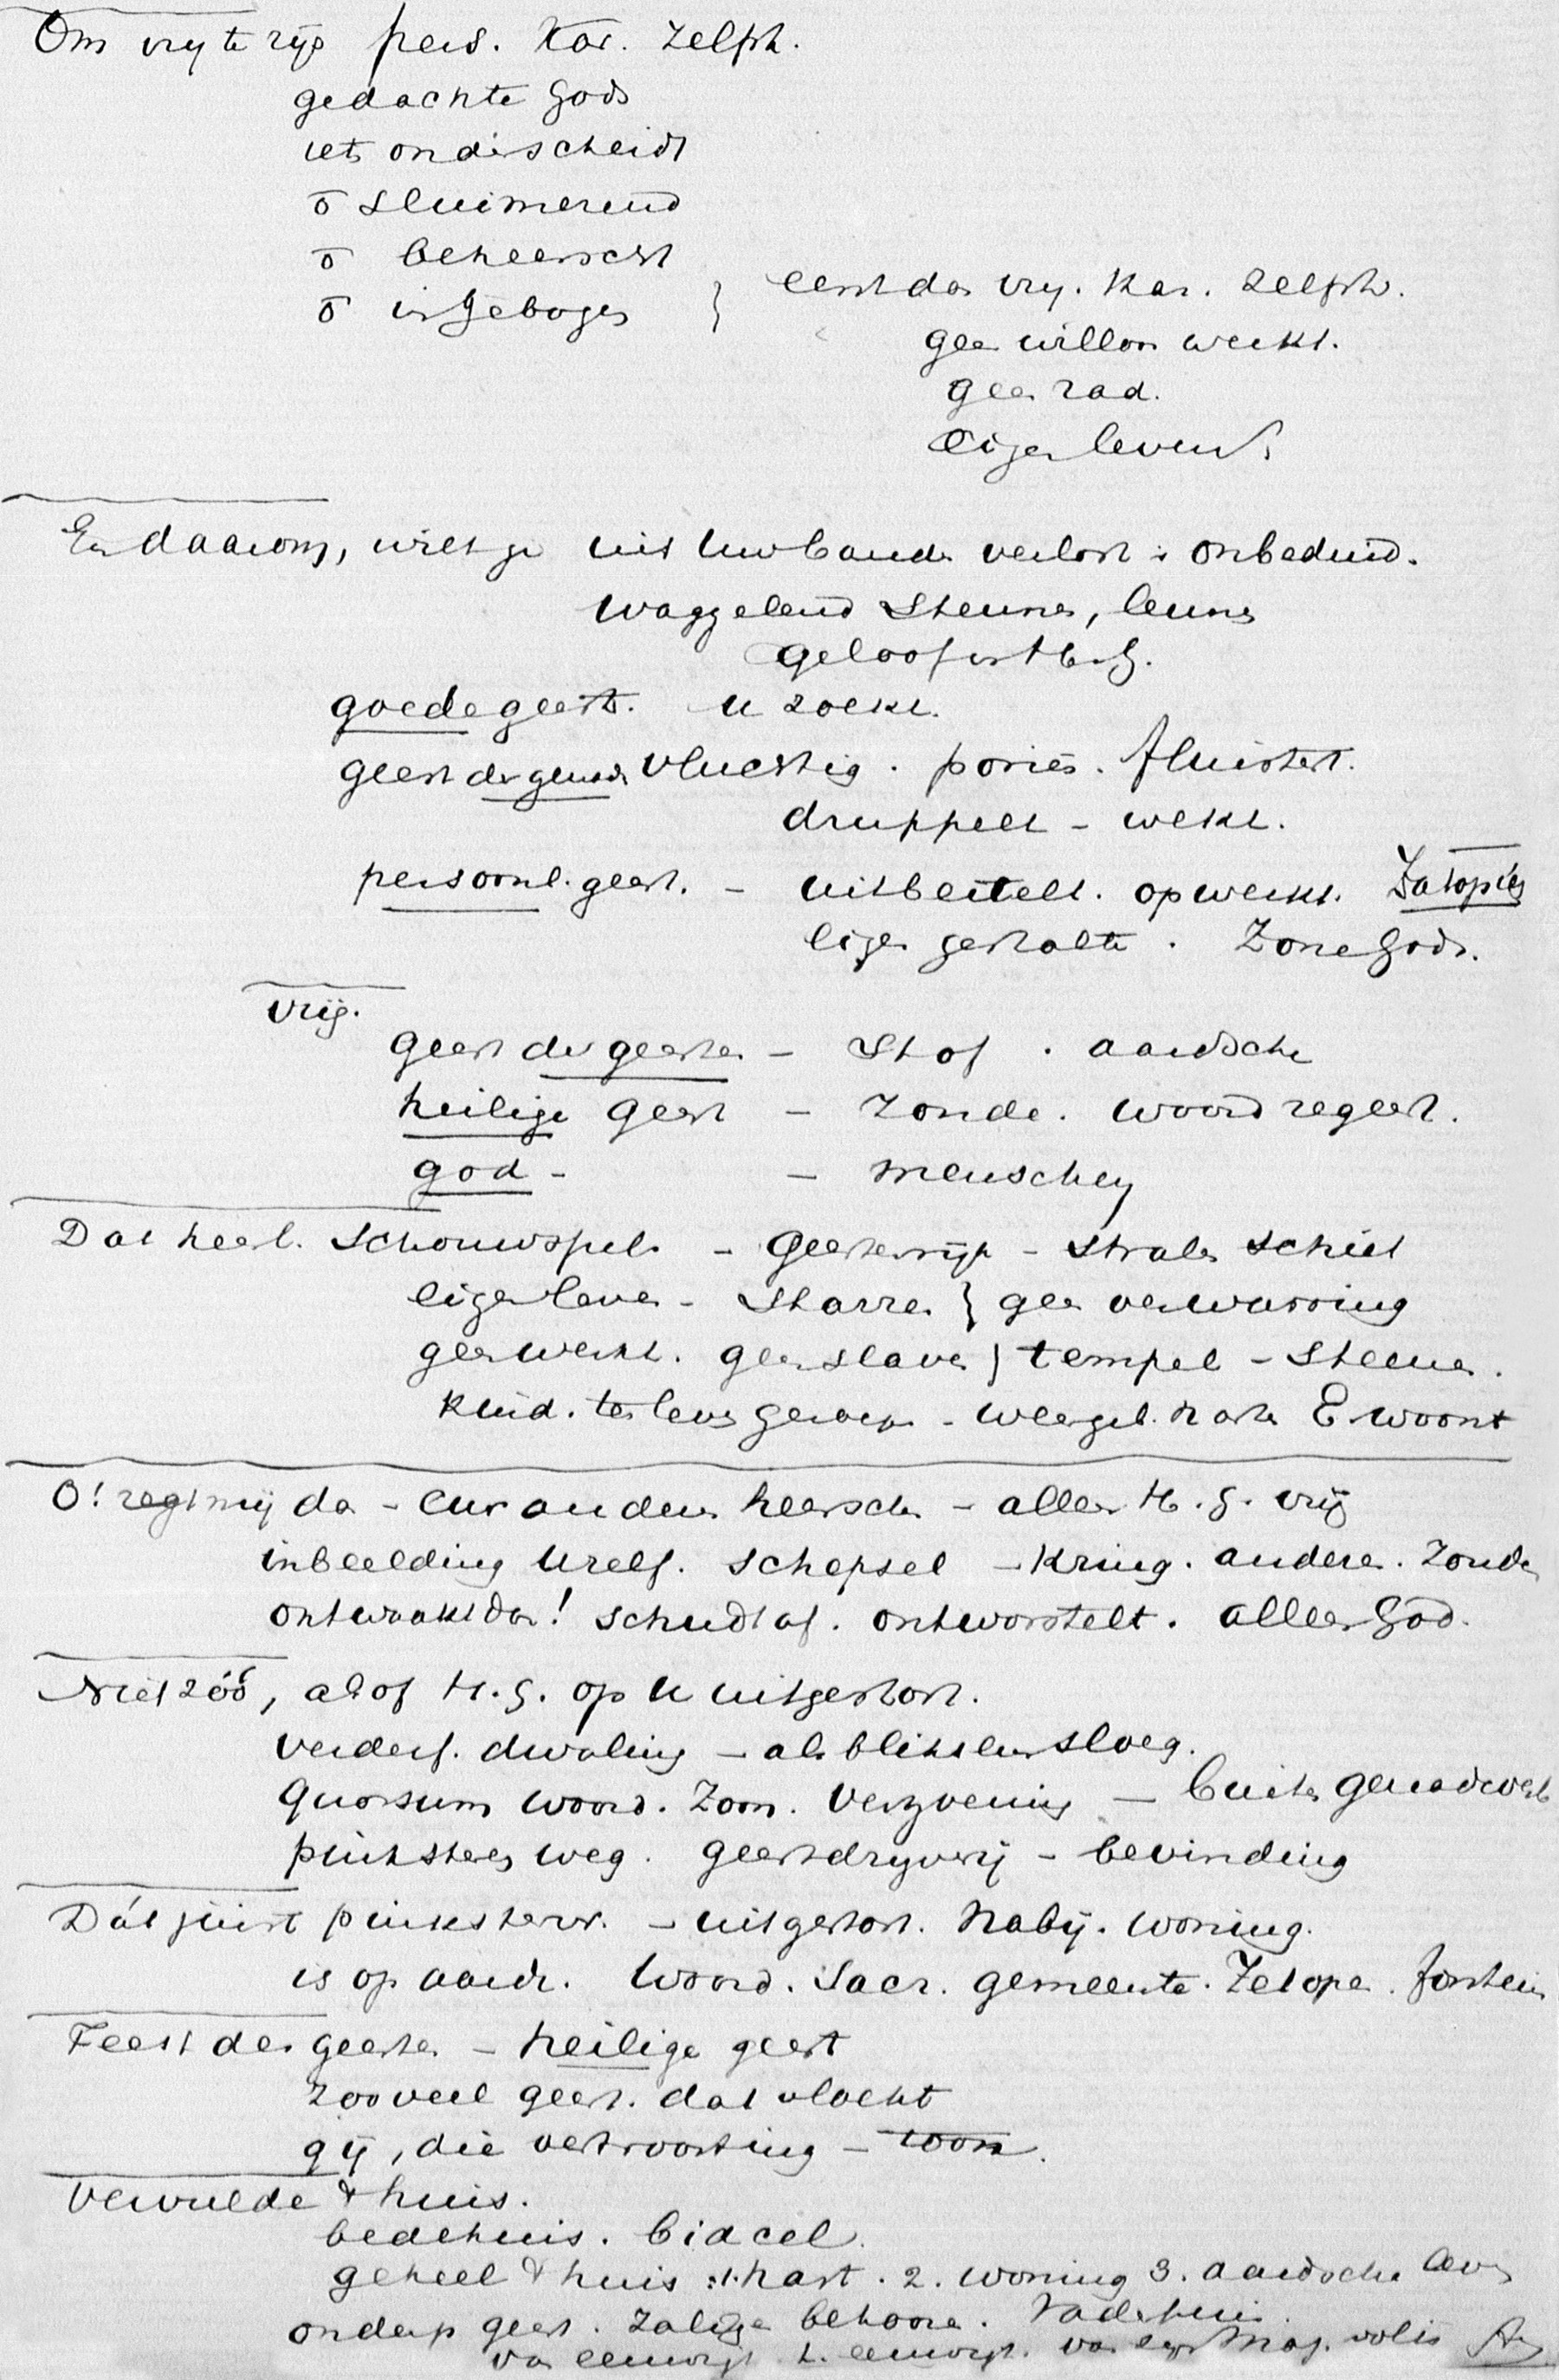 Om vry te zyn pers. Kar. Zelfst.
gedachte Gods
iets onderscheidt
o sluimerend
o beheerscht
o is gebogen } eerst dan vry. Kar. Zelfst.
geen willoos werkt.
geen rad.
eigen levend.
En daarom, wilt ge uit uw banden verlost : onbeduid.
waggelend steunen, leunen
geloof in H. G.
goede geest. u zoekt.
geest der genade vluchtig. poriën. fluistert.
druppelt - wekt.
persoonl. geest. - uitbeitelt. opwerkt.
eigen gestalte. Zone Gods.
vrij.
Geest der geesten - Stof. aardsche
heilige Geest - zonde. woord regeert.
god - - menschen
Dat heerl. Schouwspel. - Geestenrijk - stralen schiet
eigen leven - Starren } geen verwarring
geen werkt. geen slaven } tempel - steenen.
kind. ten leven geroep. - weergal. harten E. woont
O! zegt mij dan - een anderen heersch - alleen H. G. vrij
inbeelding Uzelf. schepsel - Kring. anderen. Zonde
ontwaakt dan! schudt af. ontworstelt. alleen God.
Niet zóó, alsof H. G. op U uitgestort.
verderf. dwaling - als bliksem sloeg.
Quorsum woord. Zoon. Verzoening - buiten genadeverb
pinksteren weg. Geestdryverij - bevinding
Dát juist pinksterw. - uitgestort. Nabij. woning.
is op aarde. Woord. Sacr. gemeente. Zet open. fontein
Feest der geesten - heilige geest
zooveel geest. dat vlocht
gij, die vertroosting - toon.
Vervulde 't huis.
bedehuis. bidcel.
geheel 't huis : 1. hart. 2. woning 3. aardsche leven
onderp geest. Zalige behooren. Vaderhuis.
van eeuwigh. t. eeuwigh.